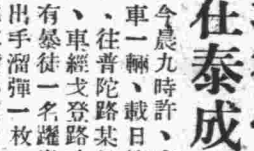 在泰成
今晨九時許、
車一輛、載日
、往普陀路某
、車經戈登路
有暴徒一名躍
出手溜彈一枚